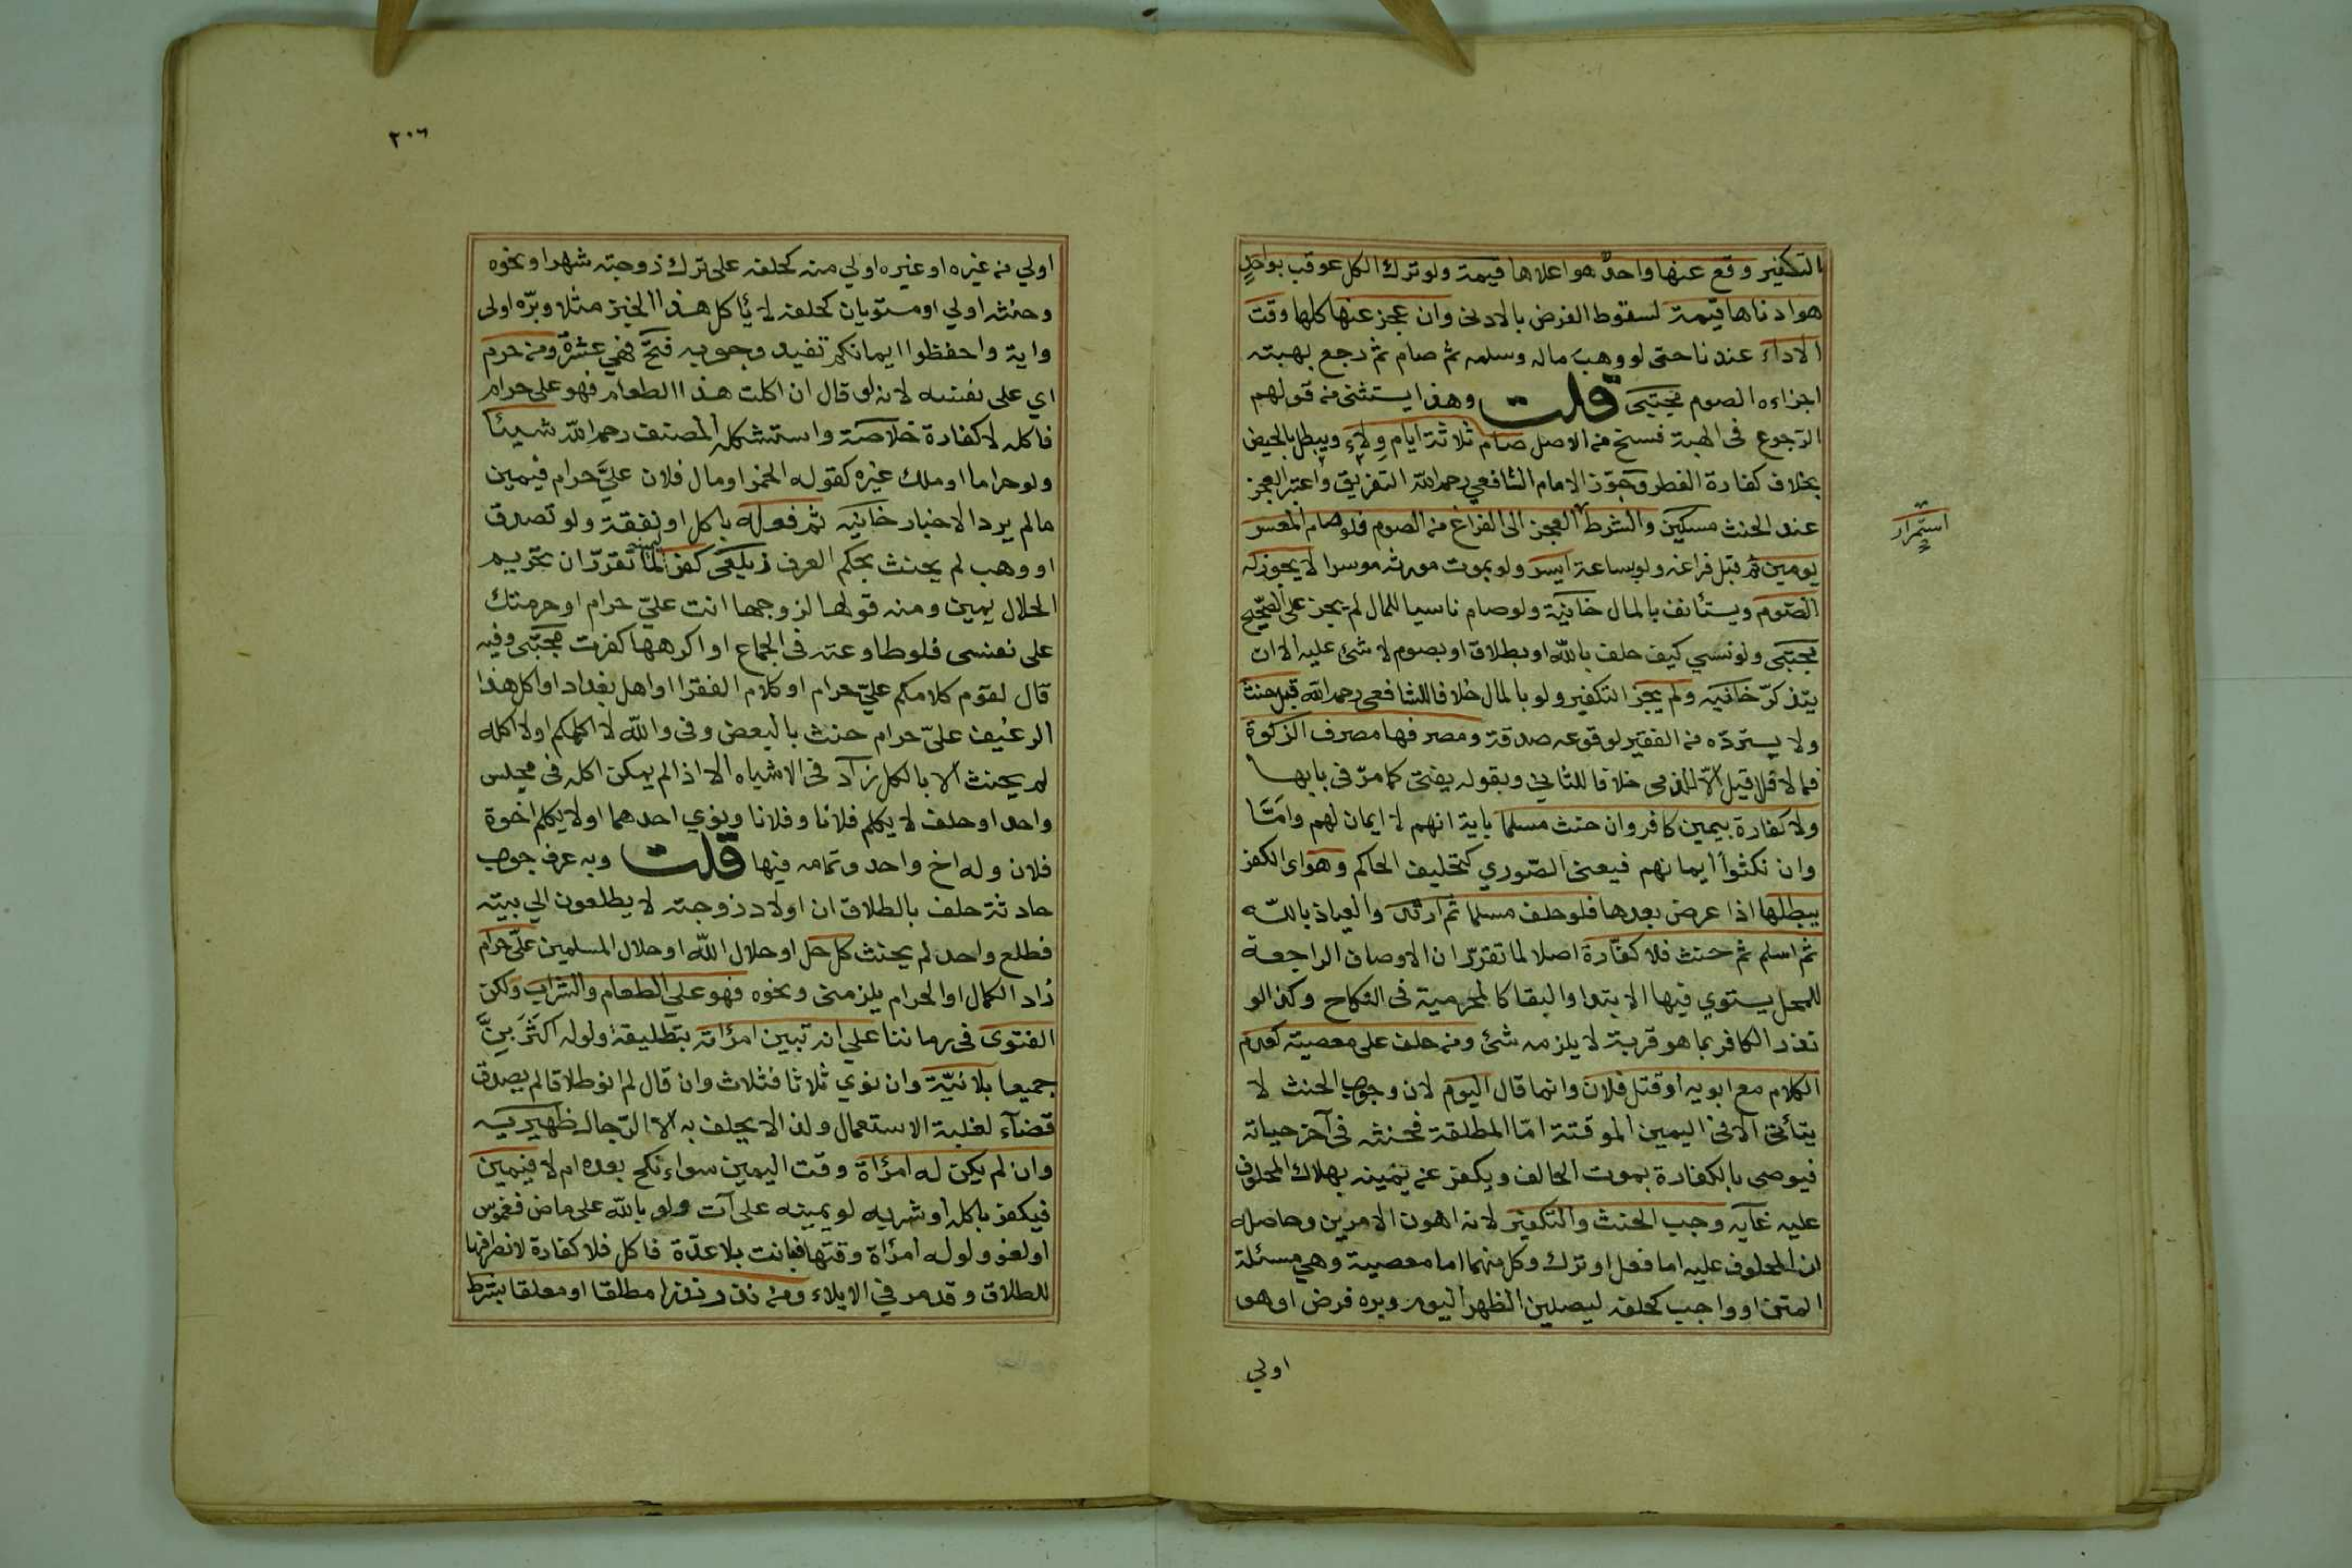 التكفير وقع عنها واحد هو اعلاها قيمة ولو ترك الكل عوقب بواحد
هو ادناها قيمة لسقوط الفرض بالادنى وان عجز عنها كلها وقت
الاداء عندنا حتى لو وهب ماله وسلمه ثم صام ثم رجع بهبته
اجزاءه الصوم مجتبى قلت وهذا يستثنى من قولهم
الرجوع فى الهبة فسخ من الاصل صام ثلاثة ايام ولاء ويبطل بالحيض
بخلاف كفارة الفطر وجوز الامام الشافعي رحمه الله التفريق واعتبر العجز
عند الحنث مسكين والشرط العجز الى الفراغ من الصوم فلو صام المعسر
استمرار
يومين ثم قبل فراغه ولو بساعة ايسر ولو بموت مورثه موسرا لا يجوز له
الصوم ويستأنف بالمال خانية ولو صام ناسيا للمال لم يجز على الصحيح
مجتبى ولو نسي كيف حلف بالله او بطلاق او بصوم لا شئ عليه الا ان
يتذكر خانيه ولم يجز التكفير ولو بالمال خلافا للشافعى رحمه الله قبل حنث
ولا يسترده من الفقير لوقوعه صدقة ومصرفها مصرف الزكوة
فما لا فلا قيل الا الذمى خلافا للثاني وبقوله يفتى كما مر فى بابها
ولا كفارة بيمين كافر وان حنث مسلما باية انهم لا ايمان لهم واما
وان نكثوا ايمانهم فيعنى الصوري كتحليف الحاكم وهو اى الكفر
يبطلها اذا عرض بعدها فلو حلف مسلما ثم ارتد والعياذ بالله
ثم اسلم ثم حنث فلا كفارة اصلا لما تقرر ان الاوصاف الراجعة
للمحل يستوي فيها الابتدا والبقا كالمحرمية فى النكاح وكذا لو
نذر الكافر بما هو قربة لا يلزمه شئ ومن حلف على معصية كعدم
الكلام مع ابويه او قتل فلان وانما قال اليوم لان وجوب الحنث لا
يتأتى الا فى اليمين الموقتة اما المطلقة فحنثه فى آخر حياته
فيوصى بالكفارة بموت الحالف ويكفر عن يمينه بهلاك المحلوف
عليه غايه وجب الحنث والتكفير لانه اهون الامرين وحاصله
ان المحلوف عليه اما فعل او ترك وكل منهما اما معصية وهي مسئلة
المتن او واجب كحلفه ليصلين الظهر اليوم وبره فرض او هو
اولي
٢٠٦
اولي من غيره او غيره اولي منه كحلفه على ترك زوجته شهرا ونحوه
وحنثه اولي او مستويان كحلفه لا يأكل هذا الخبز مثلا وبره اولى
واية واحفظوا ايمانكم تفيد وجوبه فتح فهي عشرة ومن حرم
اي على نفسه لانه لو قال ان اكلت هذا الطعام فهو على حرام
فاكله لا كفارة خلاصة واستشكله المصنف رحمه الله شيئا
ولو حراما او ملك غيره كقوله الخمر او مال فلان علي حرام فيمين
مالم يرد الاخبار خانيه ثم فعله باكل او نفقة ولو تصدق
او وهب لم يحنث بحكم العرف زيلعى كفر ليمينه لما تقرر ان تحريم
الحلال يمين ومنه قولها لزوجها انت علي حرام او حرمتك
على نفسى فلو طاوعته فى الجماع او اكرهها كفرت مجتبى وفيه
قال لقوم كلامكم علي حرام او كلام الفقرا او اهل بغداد او اكل هذا
الرغيف علي حرام حنث بالبعض وفى والله لا اكلمكم او لا اكله
لم يحنث الا بالكل زاد فى الاشباه الا اذا لم يمكن اكله فى مجلس
واحد او حلف لا يكلم فلانا وفلانا ونوي احدهما او لا يكلم اخوة
فلان وله اخ واحد وتمامه فيها قلت وبه عرف جواب
حادثة حلف بالطلاق ان اولاد زوجته لا يطلعون الي بيته
فطلع واحد لم يحنث كل حل او حلال الله او حلال المسلمين علي حرام
زاد الكمال او الحرام يلزمنى ونحوه فهو علي الطعام والشراب ولكن
الفتوى فى زماننا علي انه تبين امرأته بتطليقة ولو له اكثر بن
جميعا بلا نية وان نوي ثلاثا فثلاث وان قال لم انو طلاقا لم يصدق
قضآء لغلبة الاستعمال ولذا لا يحلف به الا الرجال ظهيريه
وان لم يكن له امرأة وقت اليمين سواء نكح بعده ام لا فيمين
فيكفر باكله او شربه لو يمينه على آت ولو بالله على ماض فغموس
او لغو ولو له امرأة وقتها فبانت بلا عدة فاكل فلا كفارة لانصرافها
للطلاق وقد مر في الايلاء ومن نذر نذرا مطلقا او معلقا بشرط